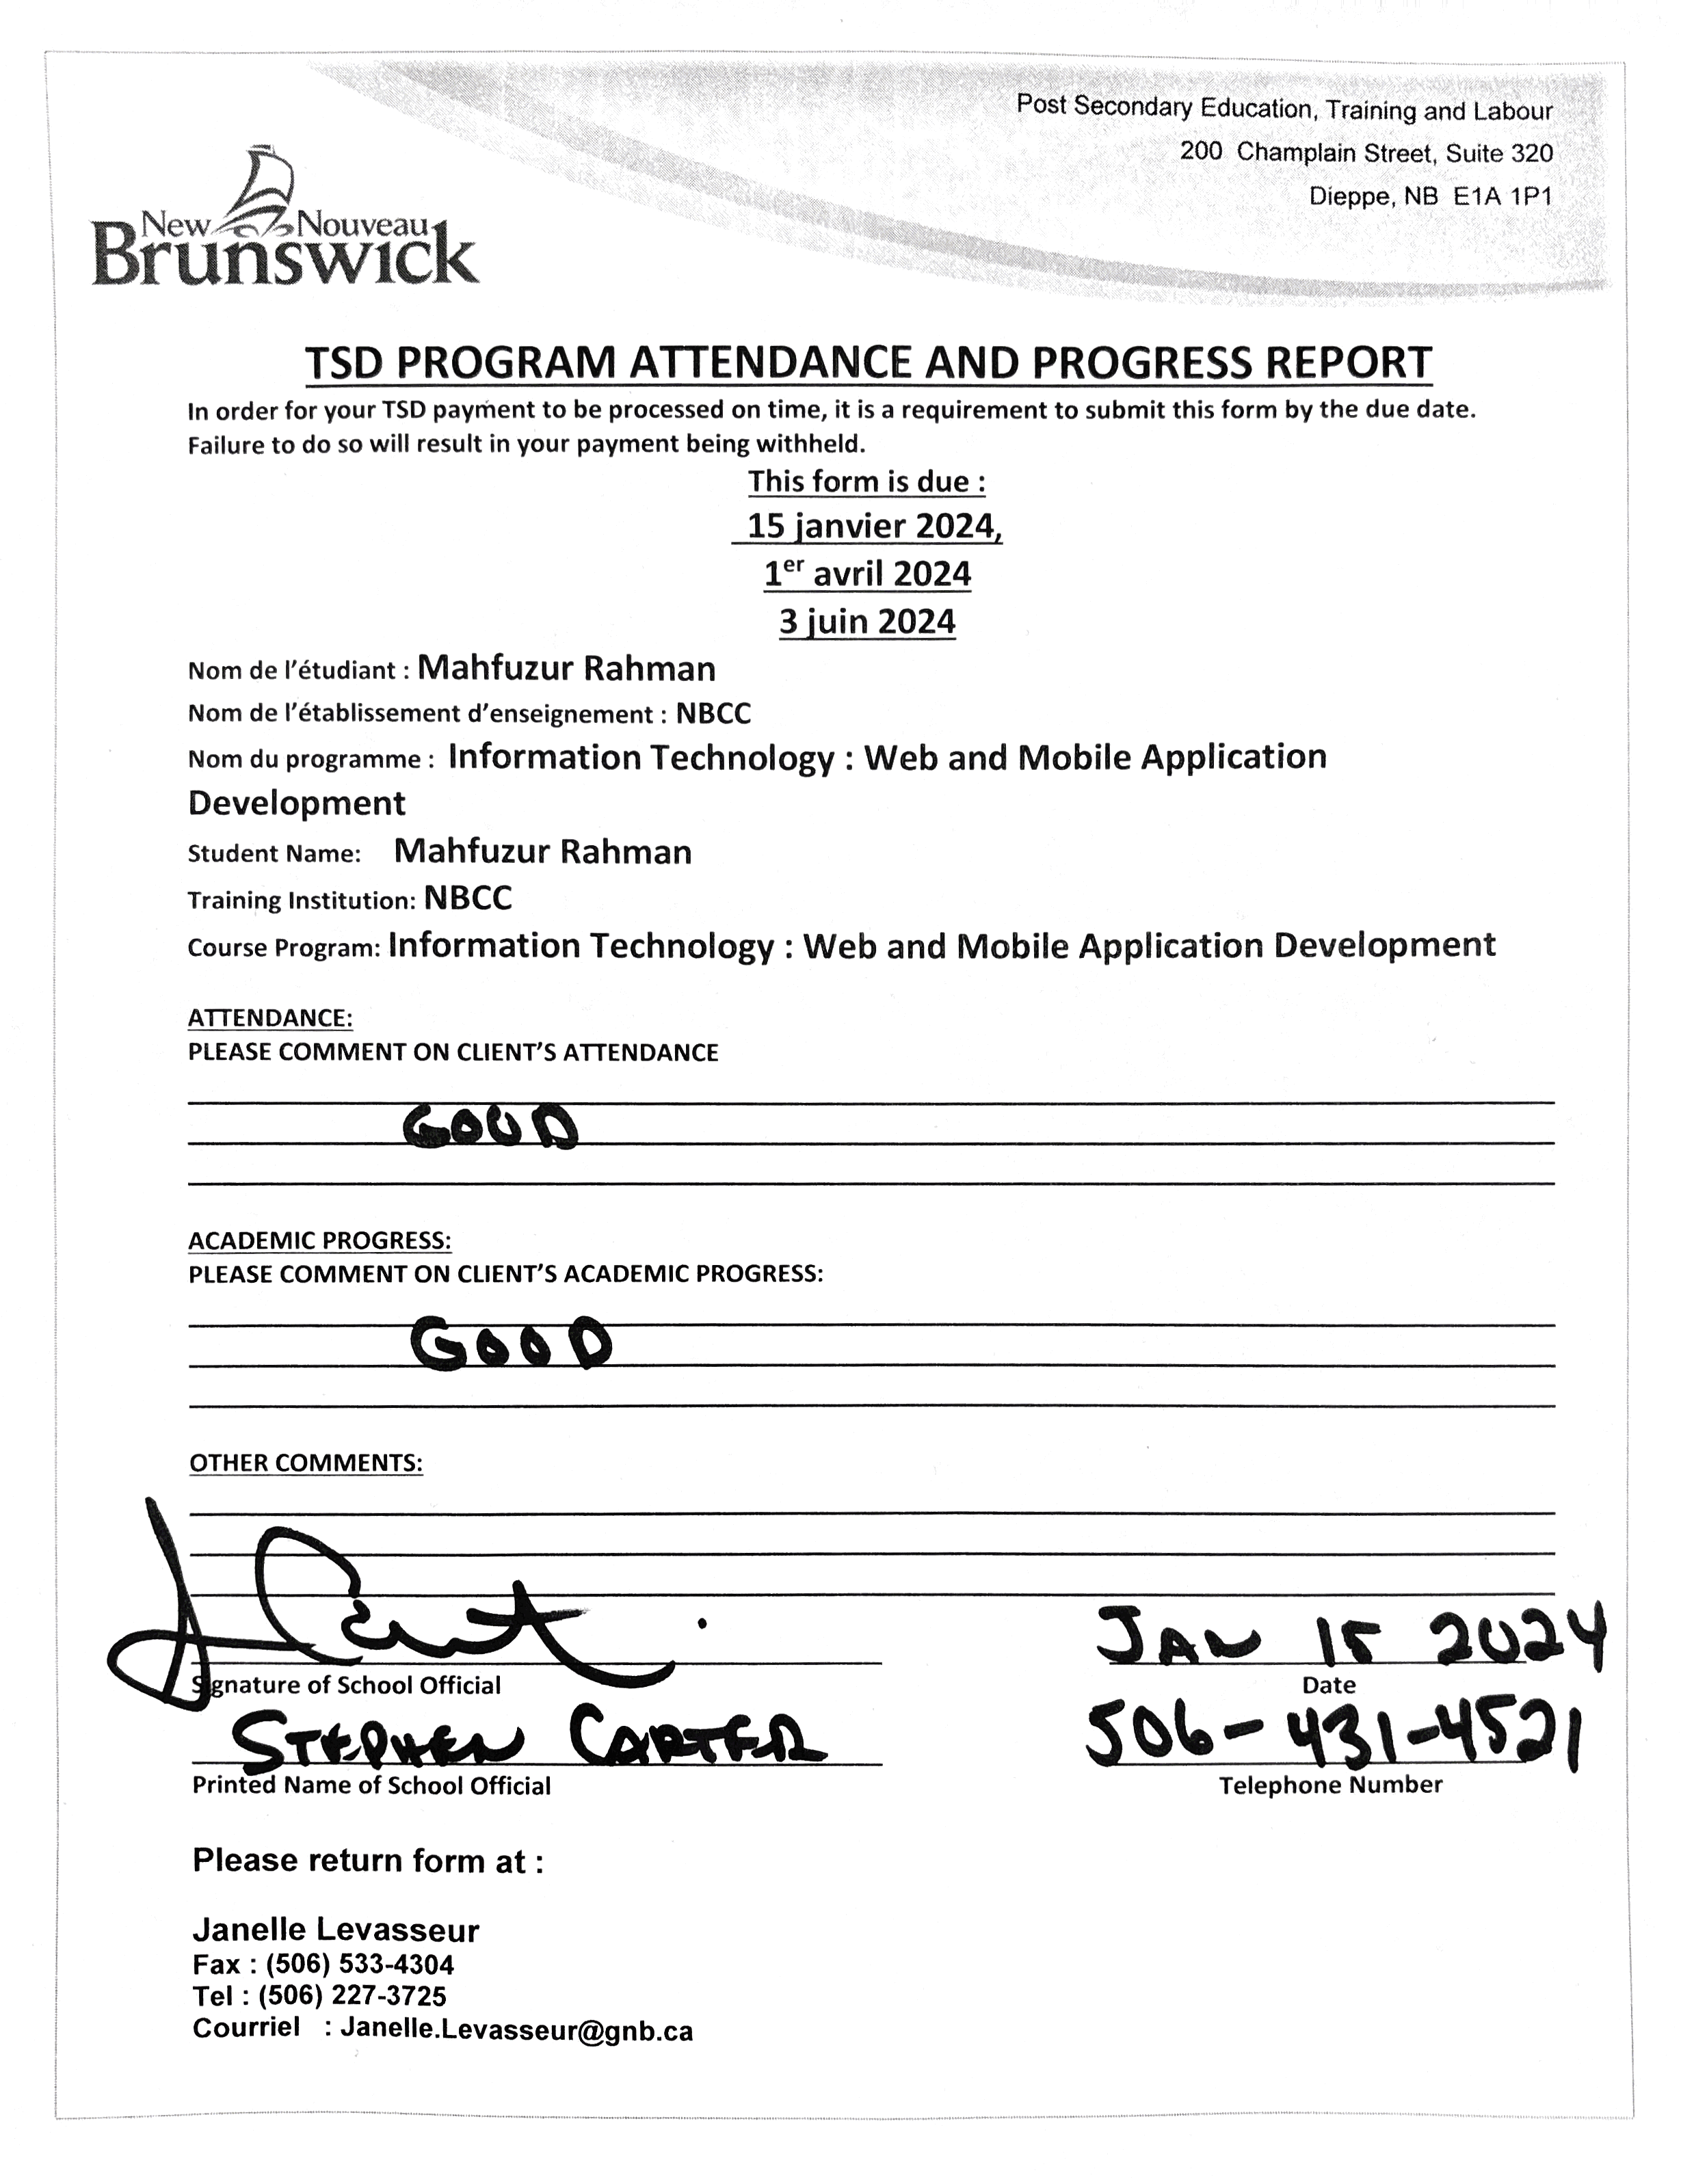 Post Secondary Education, Training and Labour
200 Champlain Street, Suite 320
Dieppe, NB E1A 1P1
New Nouveau
Brunswick
TSD PROGRAM ATTENDANCE AND PROGRESS REPORT
In order for your TSD payment to be processed on time, it is a requirement to submit this form by the due date.
Failure to do so will result in your payment being withheld.
This form is due :
15 janvier 2024,
1er avril 2024
3 juin 2024
Nom de l'étudiant : Mahfuzur Rahman
Nom de l'établissement d'enseignement : NBCC
Nom du programme : Information Technology : Web and Mobile Application
Development
Student Name: Mahfuzur Rahman
Training Institution: NBCC
Course Program: Information Technology : Web and Mobile Application Development
ATTENDANCE:
PLEASE COMMENT ON CLIENT'S ATTENDANCE
GOOD
ACADEMIC PROGRESS:
PLEASE COMMENT ON CLIENT'S ACADEMIC PROGRESS:
GOOD
OTHER COMMENTS:
JAN 15 2024
Signature of School Official Date
STEPHEN CARTER 506-431-4521
Printed Name of School Official Telephone Number
Please return form at :
Janelle Levasseur
Fax : (506) 533-4304
Tel : (506) 227-3725
Courriel : Janelle.Levasseur@gnb.ca